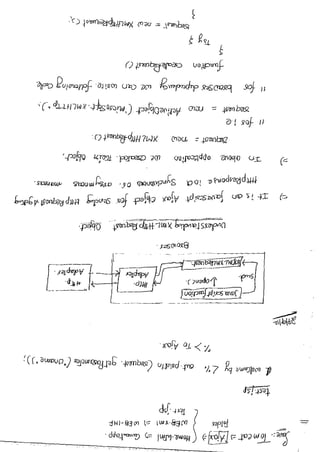 Save: Tomcat => Ajax => Home.html =>
folder WEB-INF
Test.jsp
test.jsp
by <% out.println(request.getParameter("Uname"));
%> To Ajax.
Java Script function
open().
Http
Adapter
Http.
Adapter.
Browser.
Understanding XMLHttpRequest Object.
=> It is an javascript Ajax object for sending Http Request & getting
HttpResponse in synchronous or manner.
=> In above application we created Object.
Request = new XMLHttpRequest();
// for ie
request = new ActiveObject("Microsoft.XMLHTTP");
// for browsers we can write following code
function createRequest()
{
Try {
Request = new XMLHttpRequest();
}